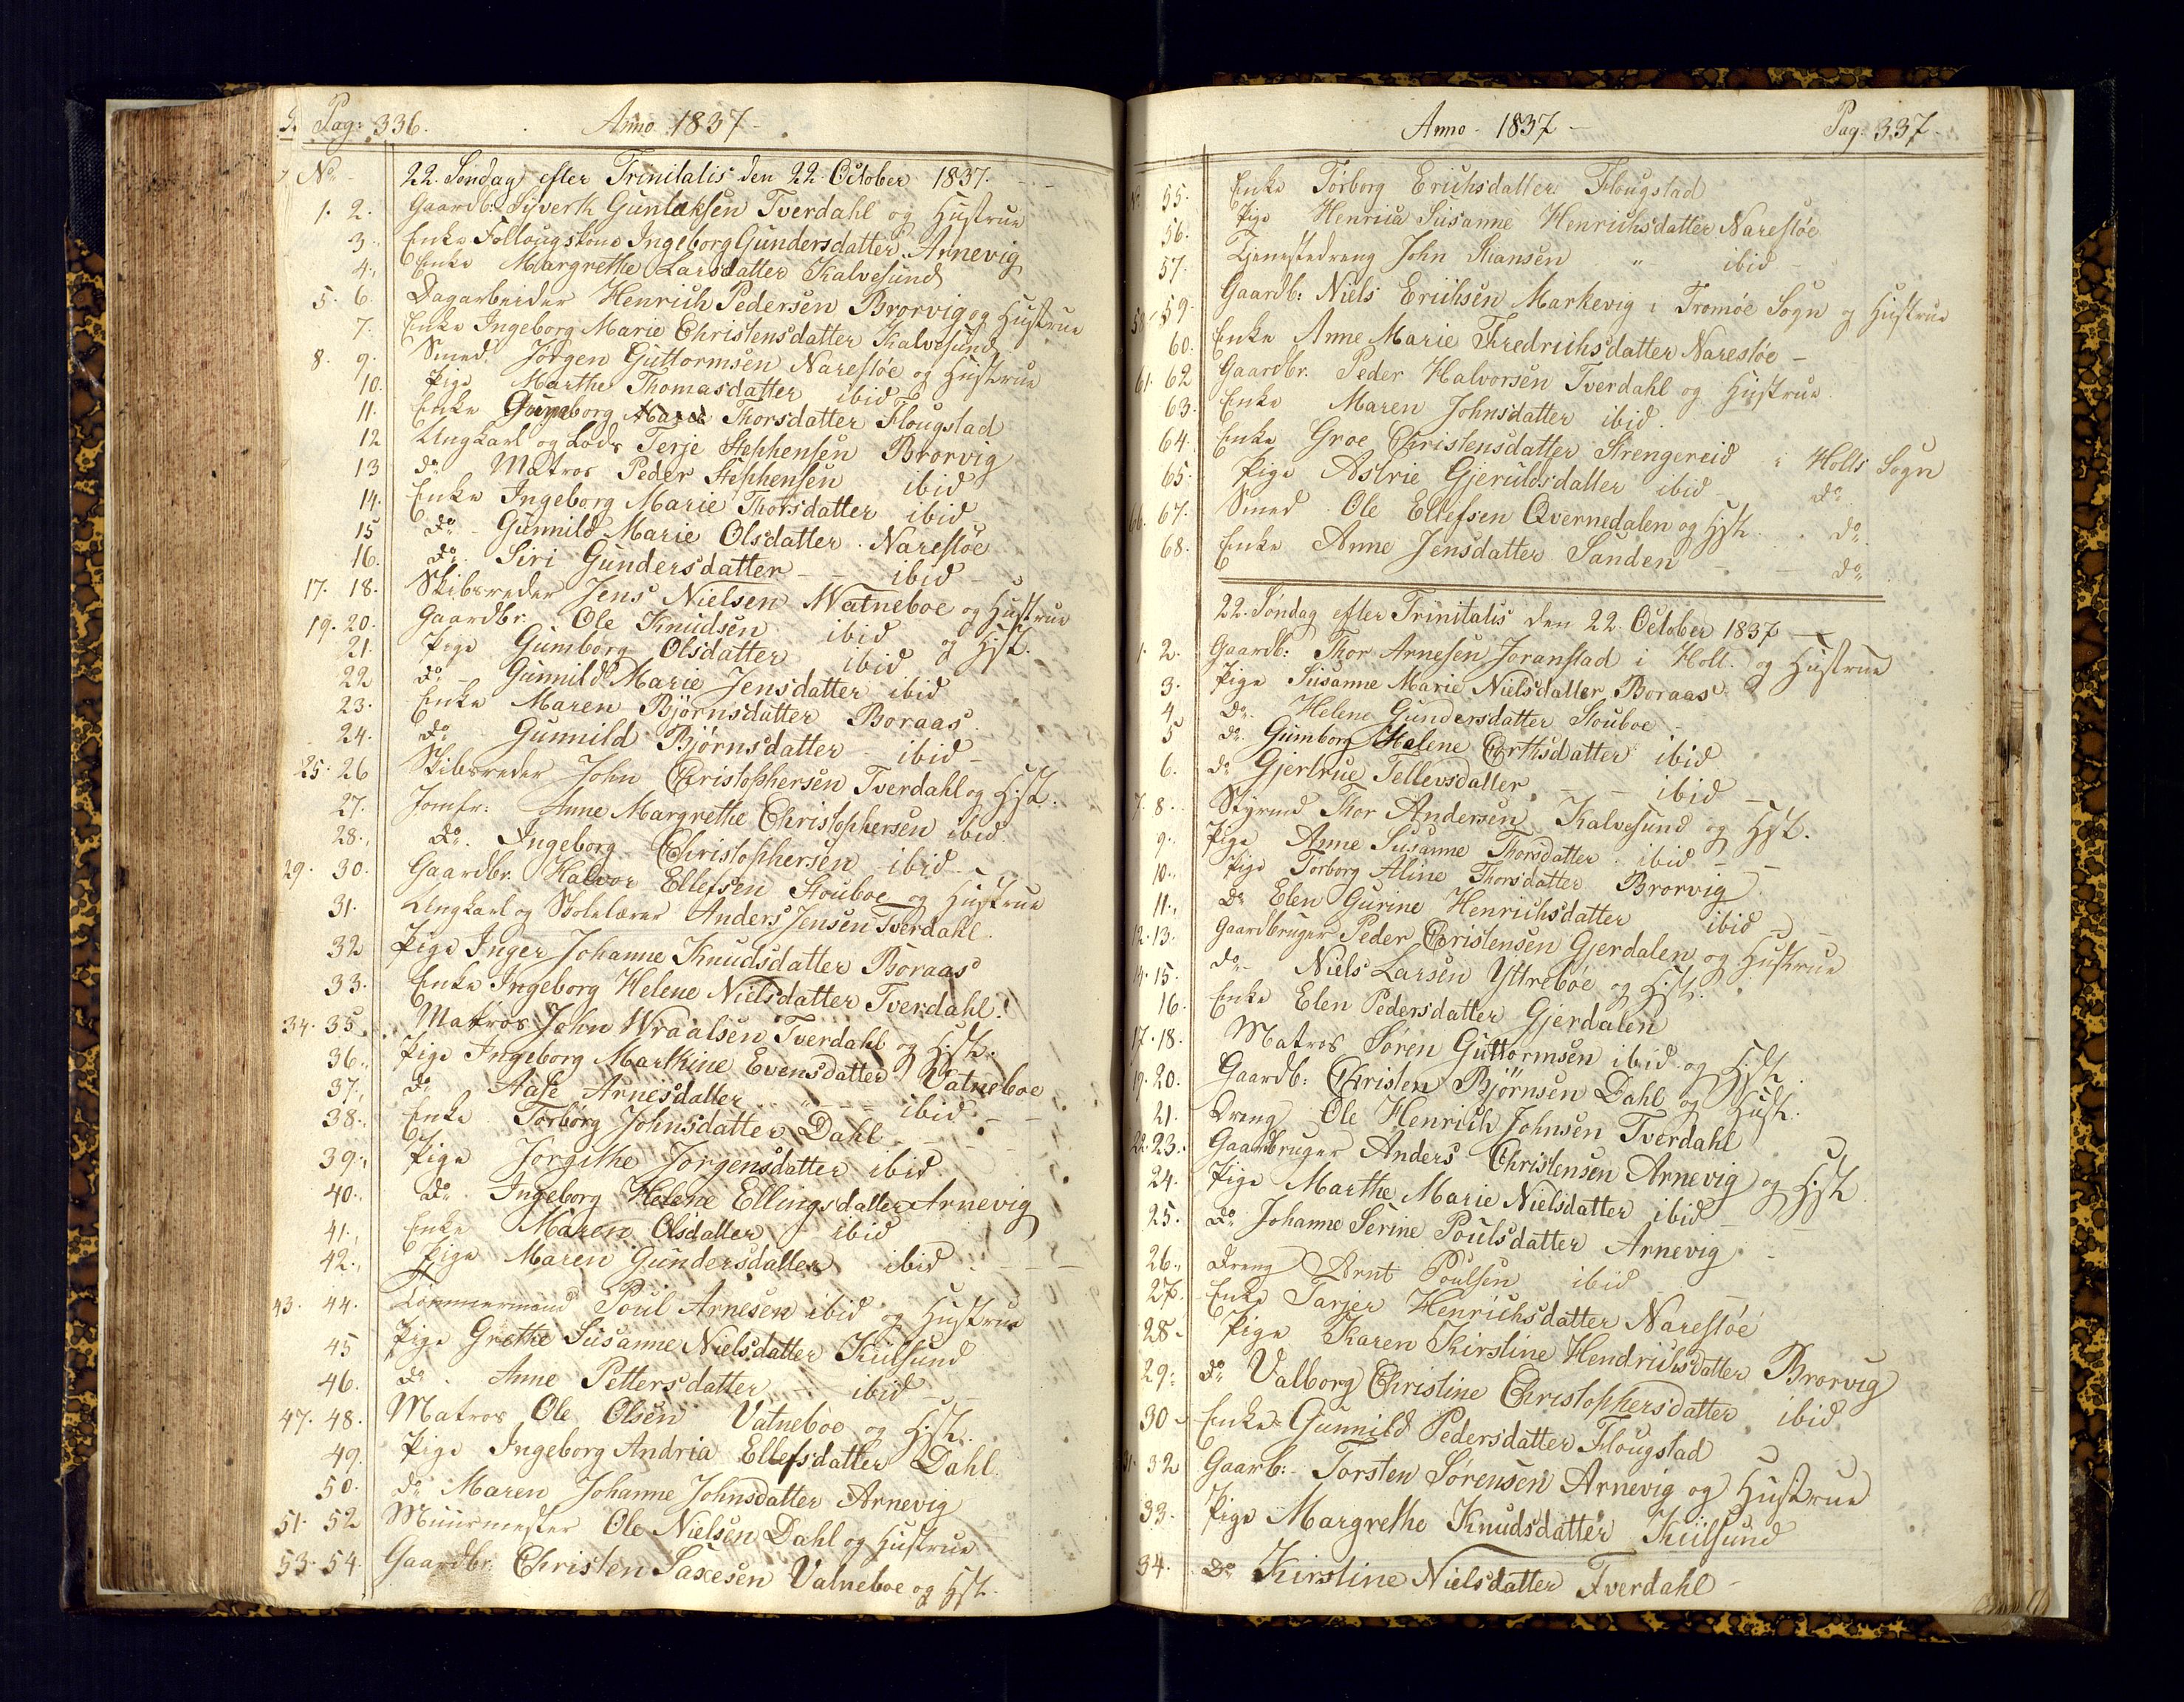 Pag: 336. Anno 1837
No 22. Søndag efter Trinitatis den 22 October 1837.
1. 2. Gaardb: Syverth Gunlaksen Tverdahl og Hustrue
3. Enke Follougskone Ingeborg Gundersdatter Arnevig
4. Enke Margrethe Larsdatter Kalvesund
5. 6. Dagarbeider Henrich Pedersen Brorvig og Hustrue
7. Enke Ingeborg Marie Christensdatter Kalvesund
8. 9. Smed. Jørgen Guttormsen Narestøe og Hustrue
10. Pige Marthe Thomasdatter ibid
11. Enke Thorsdatter Flougstad
12 Ungkarl og Lods Terje Stephensen Brorvig
13 do Matros Peder Stephensen ibid
14. Enke Ingeborg Marie Thorsdatter ibid
15 do Gunnild Marie Olsdatter Narestøe
16. do Siri Gundersdatter ibid
17. 18. Skibsreder Jens Nielsen Watneboe og Hustrue
19. 20. Gaardbr. Ole Knudsen ibid og Hst.
21. Pige Gumborg Olsdatter ibid
22 do Gunnild Marie Jensdatter ibid
23. Enke Maren Bjørnsdatter Boraas
24. do Gunnild Bjørnsdatter ibid
25. 26 Skibsreder John Christophersen Tverdahl og Hst.
27. Jomfr: Anne Margrethe Christophersen ibid
28. do. Ingeborg Christophersen ibid
29. 30. Gaardbr. Halvor Ellefsen Stouboe og Hustrue
31. Ungkarl og Skolelærer Anders Jensen Tverdahl.
32 Pige Inger Johanne Knudsdatter Boraas
33. Enke Ingeborg Helene Nielsdatter Tverdahl.
34. 35. Matros John Wraalsen Tverdahl og Hst.
36. Pige Ingeborg Marthine Evensdatter Vatneboe
37. do Aase Arnesdatter ibid
38. Enke Torborg Johnsdatter Dahl
39. Pige Jorgithe Jorgensdatter ibid
40. do. Ingeborg Helene Ellingsdatter Arnevig
41. Enke Maren Olsdatter ibid
42. Pige Maren Gundersdatter ibid
43. 44. Tømmermand Poul Arnesen ibid og Hustrue
45 Pige Grethe Susanne Nielsdatter Kiilsund
46. do. Anne Pettersdatter ibid
47. 48. Matros Ole Olsen Vatneboe og Hst.
49. Pige Ingeborg Andria Ellefsdatter Dahl.
50. do Maren Johanne Johnsdatter Arnevig
51. 52 Muurmester Ole Nielsen Dahl og Hustrue
53. 54. Gaardbr. Christen Saxesen Vatneboe og Hst.
Anno 1837 Pag. 337
55. Enke Torborg Erichsdatter Flougstad
56. Pige Henrica Susanne Henrichsdatter Narestøe
57. Tjenestedreng John Hansen " ibid
58. 59. Gaardb: Niels Erichsen Markevig i Tromøe Sogn og Hustrue
60. Enke Anne Marie Fredrichsdatter Narestøe
61. 62 Gaardbr. Peder Halvorsen Tverdahl og Hustrue
63. Enke Maren Johnsdatter ibid.
64. Enke Groe Christensdatter Strengereid i Holts Sogn
65. Pige Astrie Gjeruldsdatter ibid do
66. 67. Smed Ole Ellefsen Qvernedalen og Hst. do
68. Enke Anne Jensdatter Sanden do
22. Søndag efter Trinitatis den 22. October 1837
1. 2. Gaardb: Thor Arnesen Joranstad i Holt. og Hustrue
3. Pige Susanne Marie Nielsdatter Boraas
4 do. Helene Gundersdatter Stouboe
5 do. Gumborg Helene ibid
6. do Gjertrue Tellevsdatter ibid
7. 8. Styrmd Thor Andersen Kalvesund og Hst.
9. Pige Anne Susanne Thorsdatter ibid
10. Pige Torborg Aline Thorsdatter Brorvig
11. do Elen Gurine Henrichsdatter ibid
12. 13. Gaardbruger Peder Christensen Gjerdalen og Hustrue
14. 15. do Niels Larsen Yttrebøe og Hst.
16. Enke Elen Pedersdatter Gjerdalen
17. 18. Matros Søren Guttormsen ibid og Hst.
19. 20. Gaardb: Christen Bjørnsen Dahl og Hust.
21. Dreng Ole Henrich Johnsen Tverdahl
22. 23. Gaardbruger Anders Christensen Arnevig og Hst.
24. Pige Marthe Marie Nielsdatter ibid
25. do Johanne Serine Poulsdatter Arnevig
26. Dreng Arnt Poulsen ibid
27. Enke Tarjer Henrichsdatter Narestøe
28 Pige Karen Kirstine Hendrichsdatter Brorvig
29. do Valborg Christine Christophersdatter ibid
30 Enke Gunnild Pedersdatter Flougstad
31. 32 Gaarb: Torsten Sørensen Arnevig og Hustrue
33. Pige Margrethe Knudsdatter Kiilsund
34. do Kirstine Nielsdatter Tverdahl